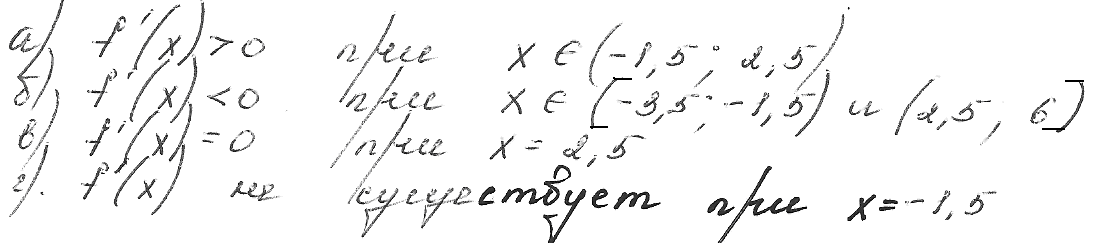 а) f'(x) > 0 при x ∈ (-1,5; 2,5)
б) f'(x) < 0 при x ∈ [-3,5; -1,5) и (2,5; 6]
в) f'(x) = 0 при x = 2,5
г). f'(x) не существует при x = -1,5